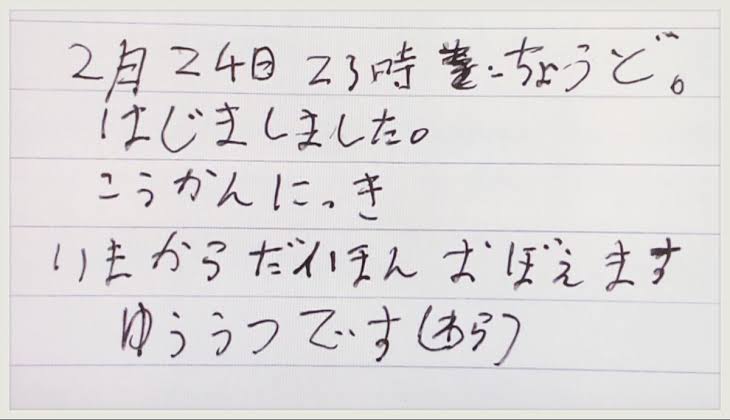 2月24日 23時 ちょうど。
はじましました。
こうかんにっき
いまからだいほん おぼえます
ゆううつです(わら)